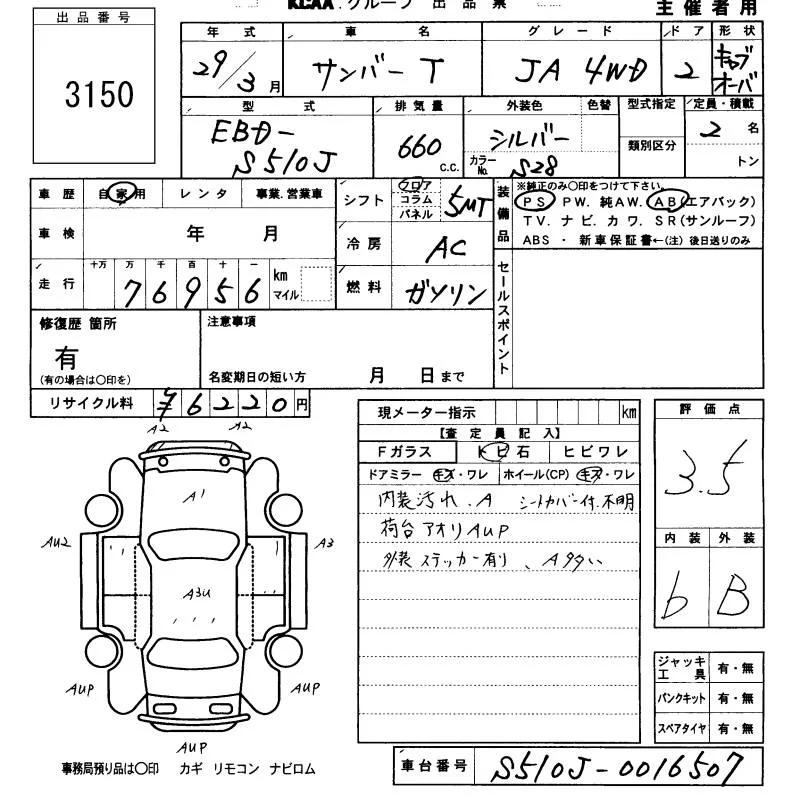 KCAA. グループ 出品票
主催者用
出品番号
3150
年式 車名 グレード ドア 形状
29/3月 サンバーT JA 4WD 2 キャブオーバ
型式 排気量 外装色 色替 型式指定 定員・積載
EBD-S510J 660 c.c. シルバー 類別区分 2名
カラーNo. S28 トン
車歴 自家用 レンタ 事業.営業車
シフト フロア コラム パネル 5MT
装備品 ※純正のみ○印をつけて下さい。
PS PW. 純AW. AB(エアバック)
TV. ナビ. カワ. SR(サンルーフ)
ABS ・ 新車保証書←(注) 後日送りのみ
車検 年 月
冷房 AC
走行 十万 万 千 百 十 一
76956 km マイル
燃料 ガソリン
セールスポイント
修復歴 箇所
有
(有の場合は○印を)
注意事項
名変期日の短い方 月 日まで
リサイクル料 ¥6220円
現メーター指示 km
【査定員記入】
Fガラス トビ石 ヒビワレ
ドアミラー キズ・ワレ ホイール(CP) キズ・ワレ
内装汚れ.A シートカバー付.不明
荷台アオリAUP
外装ステッカー有り、A多い
評価点
3.5
内装 外装
b B
A2 A2
A1
AU2 A3
A3U
AUP AUP
AUP
ジャッキ工具 有・無
パンクキット 有・無
スペアタイヤ 有・無
事務局預り品は○印 カギ リモコン ナビロム
車台番号 S510J-0016507